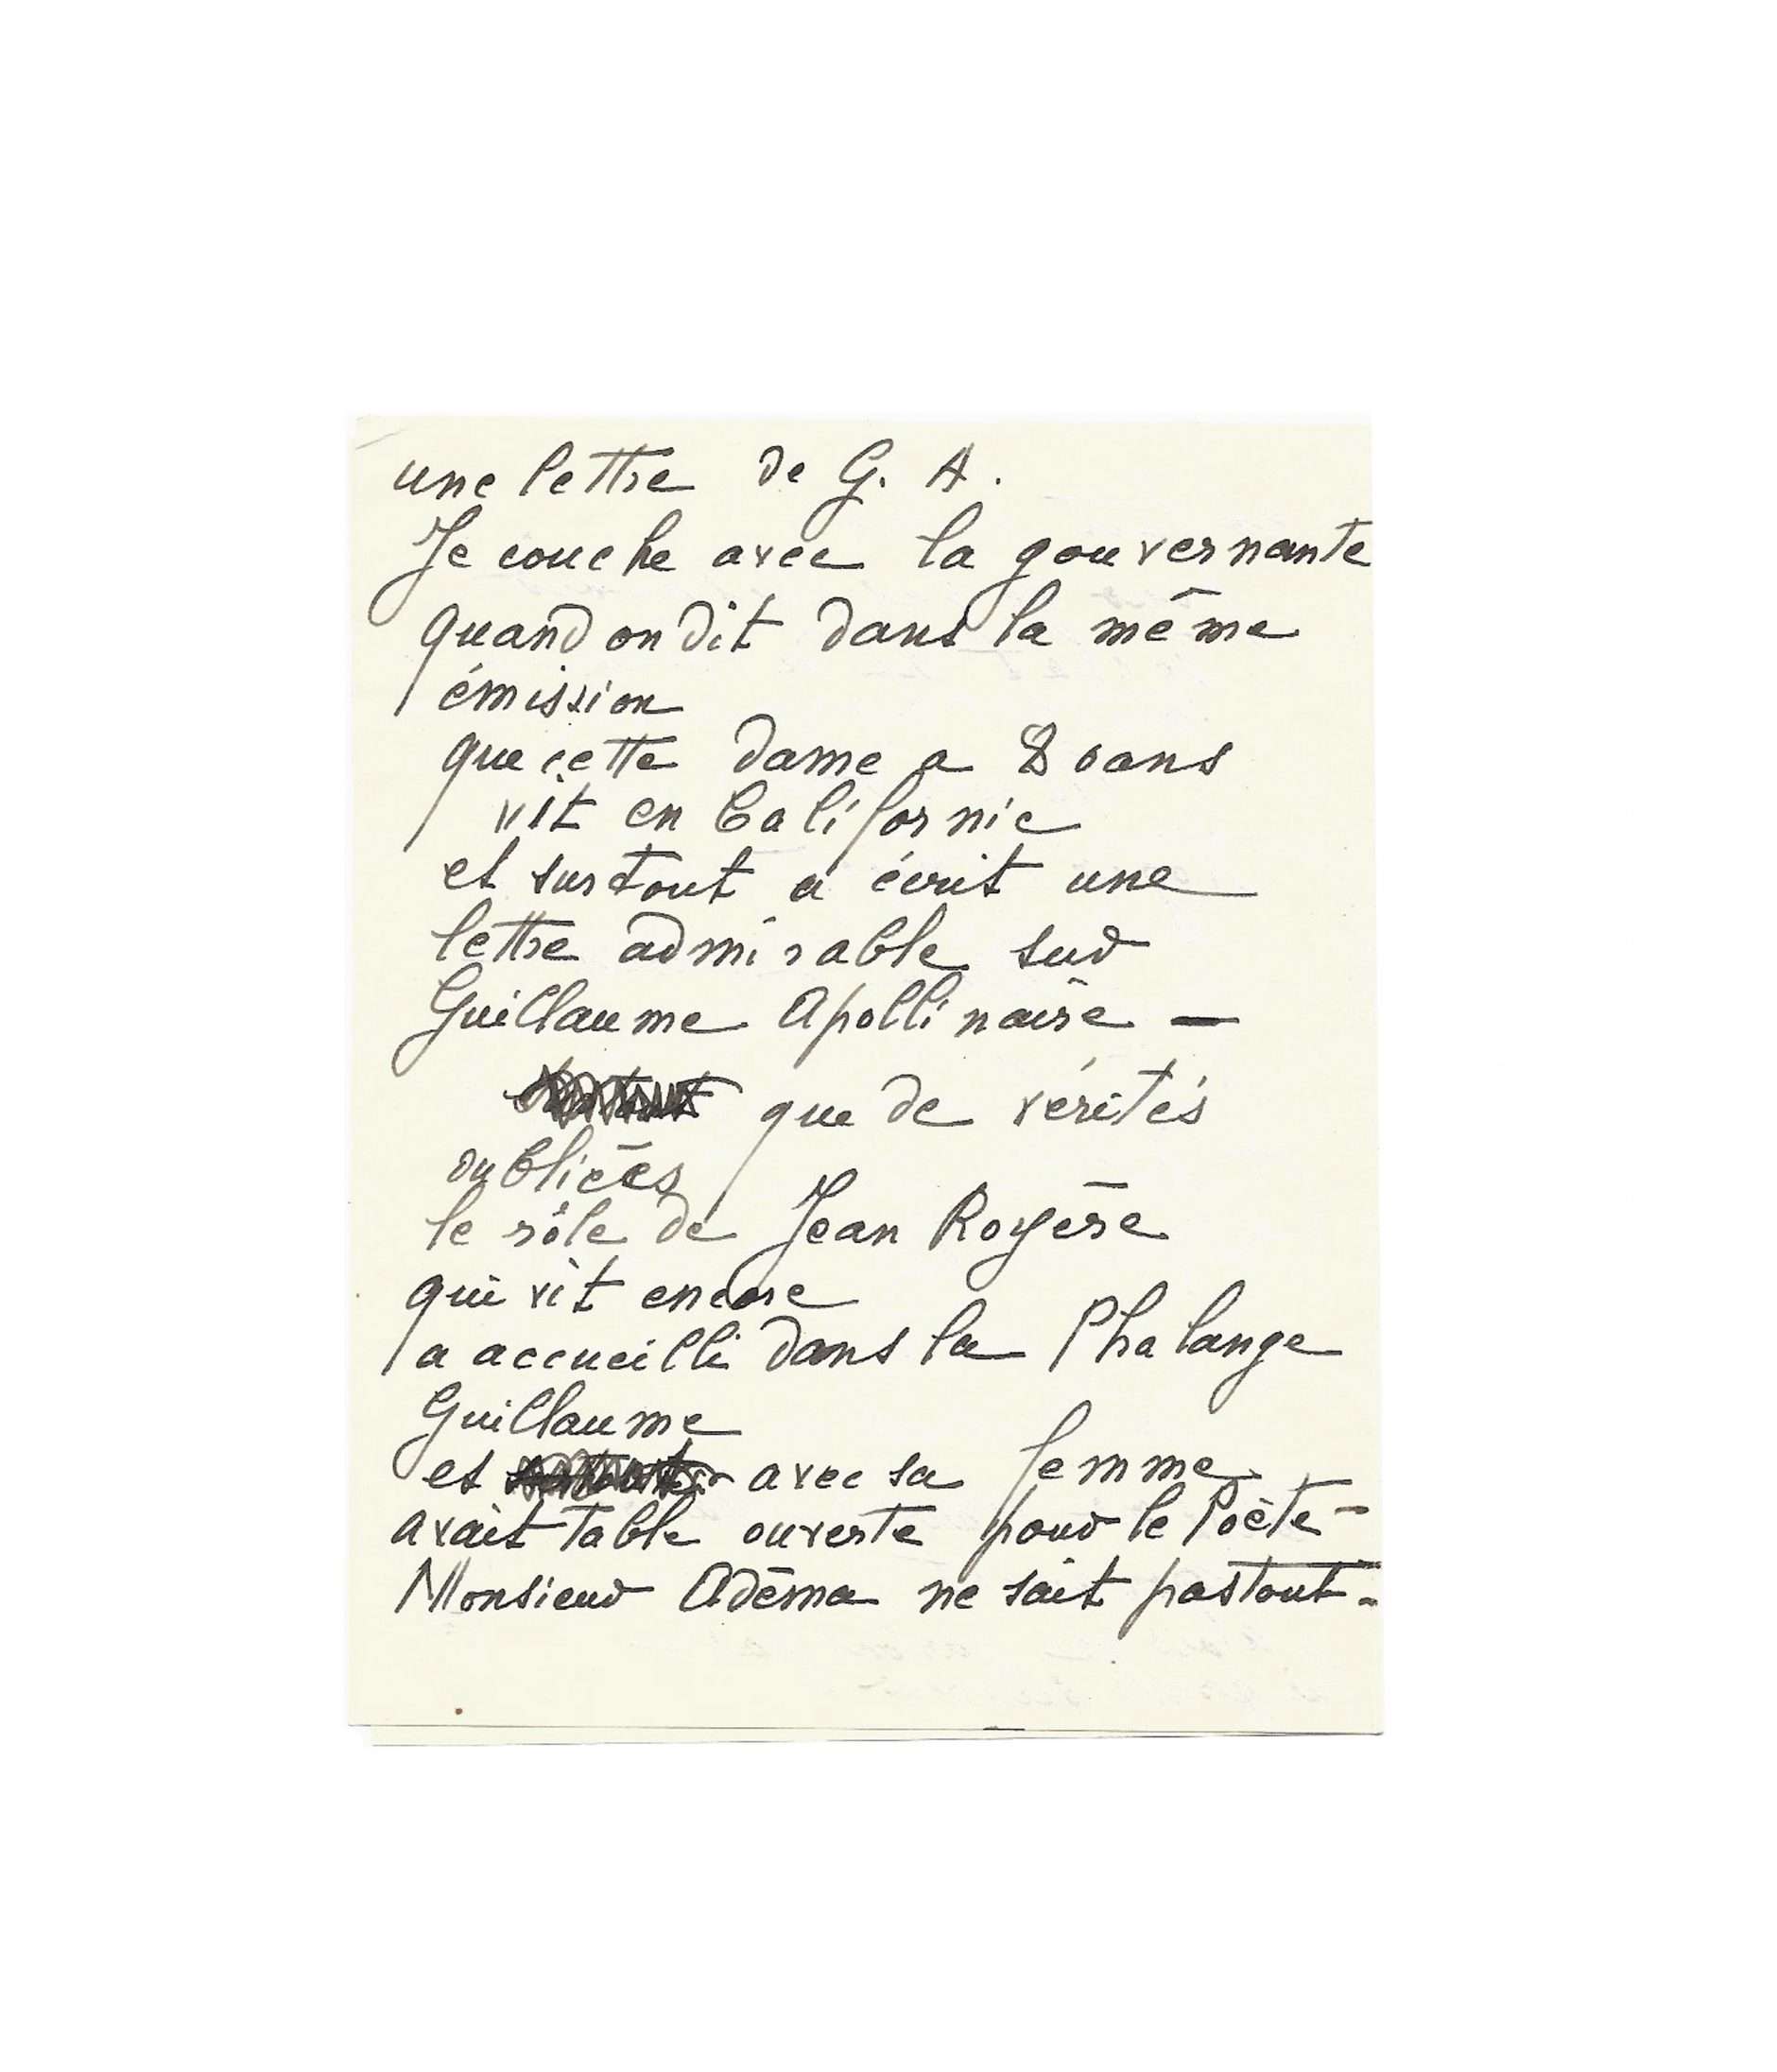 une lettre de G. A.
Je couche avec la gouvernante
quand on dit dans la même
émission
que cette dame a 80 ans
vit en Californie
et surtout a écrit une
lettre admirable sur
Guillaume Apollinaire —
que de vérités
oubliées
le rôle de Jean Royère
qui vit encore
a accueilli dans la Phalange
Guillaume
et avec sa femme
avait table ouverte pour le Poète -
Monsieur Adéma ne sait pas tout -